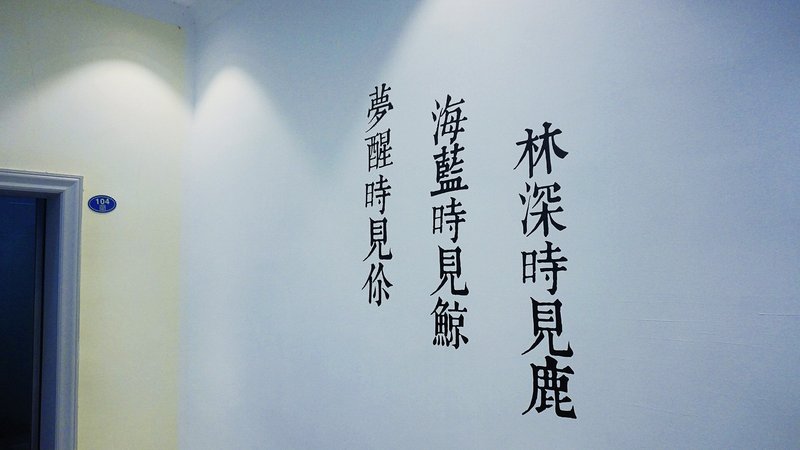 林深時見鹿
海藍時見鯨
夢醒時見你
104